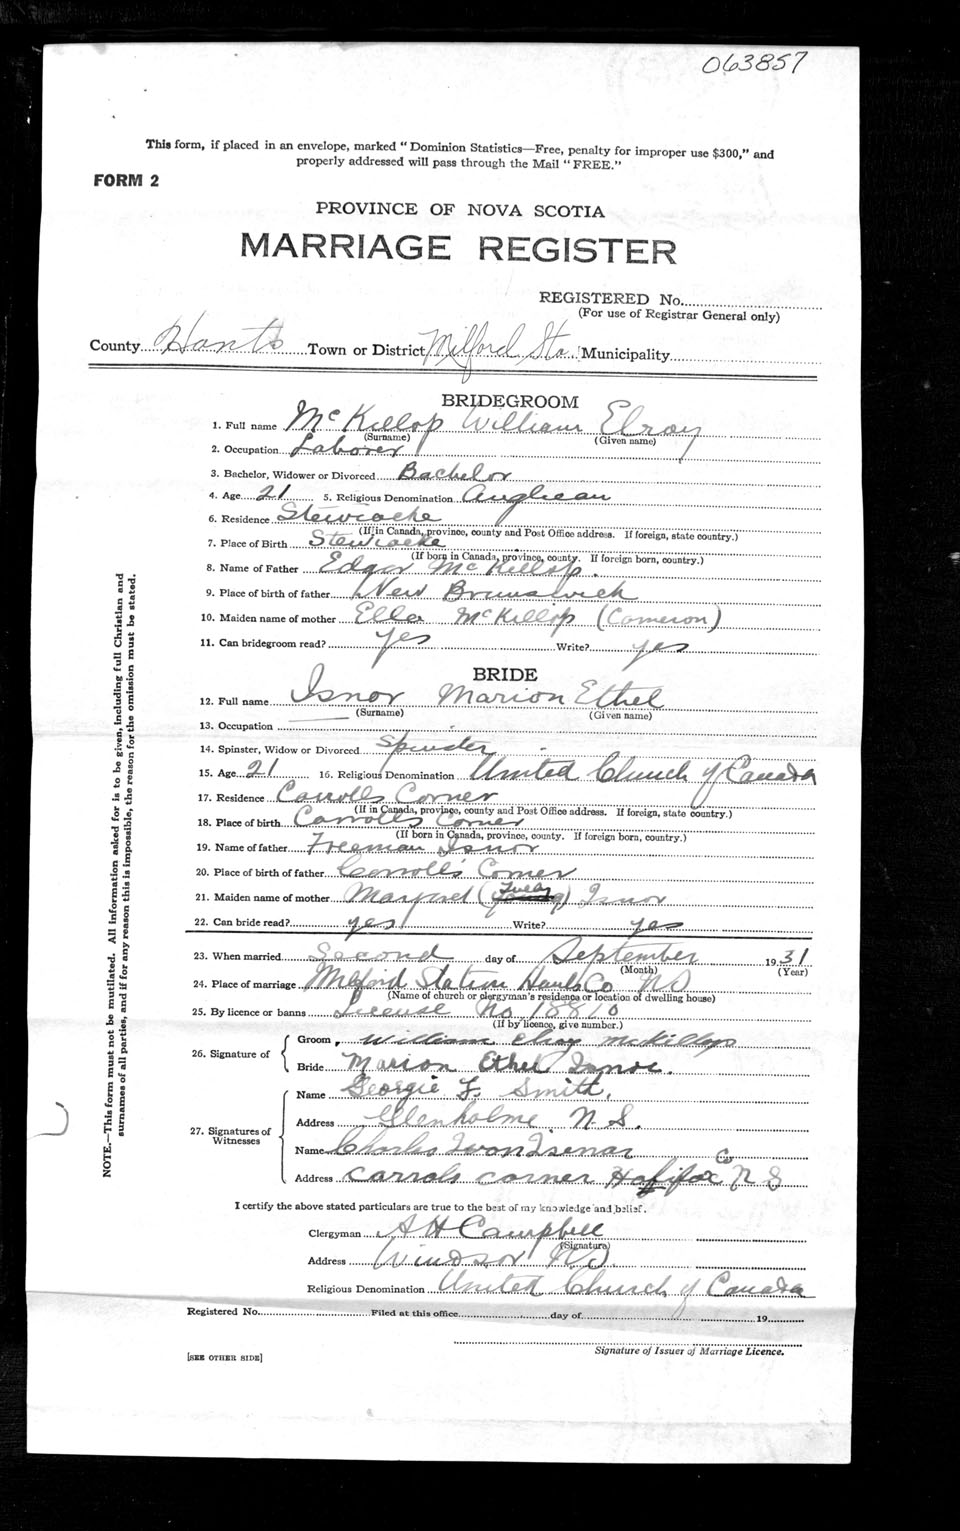 063857
This form, if placed in an envelope, marked "Dominion Statistics—Free, penalty for improper use $300," and
properly addressed will pass through the Mail "FREE."
FORM 2
PROVINCE OF NOVA SCOTIA
MARRIAGE REGISTER
REGISTERED No.
(For use of Registrar General only)
County Hants Town or District Milford Sta. Municipality
BRIDEGROOM
1. Full name McKillop William Elroy
(Surname) (Given name)
2. Occupation Laborer
3. Bachelor, Widower or Divorced Bachelor
4. Age 21 5. Religious Denomination Anglican
6. Residence Stewiacke
(If in Canada, province, county and Post Office address. If foreign, state country.)
7. Place of Birth Stewiacke
(If born in Canada, province, county. If foreign born, country.)
8. Name of Father Edgar McKillop.
9. Place of birth of father New Brunswick
10. Maiden name of mother Ella McKillop (Cameron)
11. Can bridegroom read? yes Write? yes
BRIDE
12. Full name Isnor Marion Ethel
(Surname) (Given name)
13. Occupation
14. Spinster, Widow or Divorced Spinster
15. Age 21 16. Religious Denomination United Church of Canada
17. Residence Carrolls Corner
(If in Canada, province, county and Post Office address. If foreign, state country.)
18. Place of birth Carrolls Corner
(If born in Canada, province, county. If foreign born, country.)
19. Name of father Freeman Isnor
20. Place of birth of father Carroll's Corner
21. Maiden name of mother Margaret Isnor
22. Can bride read? yes Write? yes
23. When married Second day of September 1931
(Month) (Year)
24. Place of marriage Milford Station Hants Co NS
(Name of church or clergyman's residence or location of dwelling house)
25. By licence or banns License No 18810
(If by licence, give number.)
26. Signature of
Groom, William Elroy McKillop
Bride Marion Ethel Isnor.
27. Signatures of Witnesses
Name Georgie F. Smith.
Address Glenholme, N.S.
Name Charles Isenar
Address Carrols corner Halifax Co N S
I certify the above stated particulars are true to the best of my knowledge and belief.
Clergyman A H Campbell
(Signature)
Address Windsor NS.
Religious Denomination United Church of Canada
Registered No. Filed at this office day of 19
Signature of Issuer of Marriage Licence.
[SEE OTHER SIDE]
NOTE.—This form must not be mutilated. All information asked for is to be given, including full Christian and
surnames of all parties, and if for any reason this is impossible, the reason for the omission must be stated.